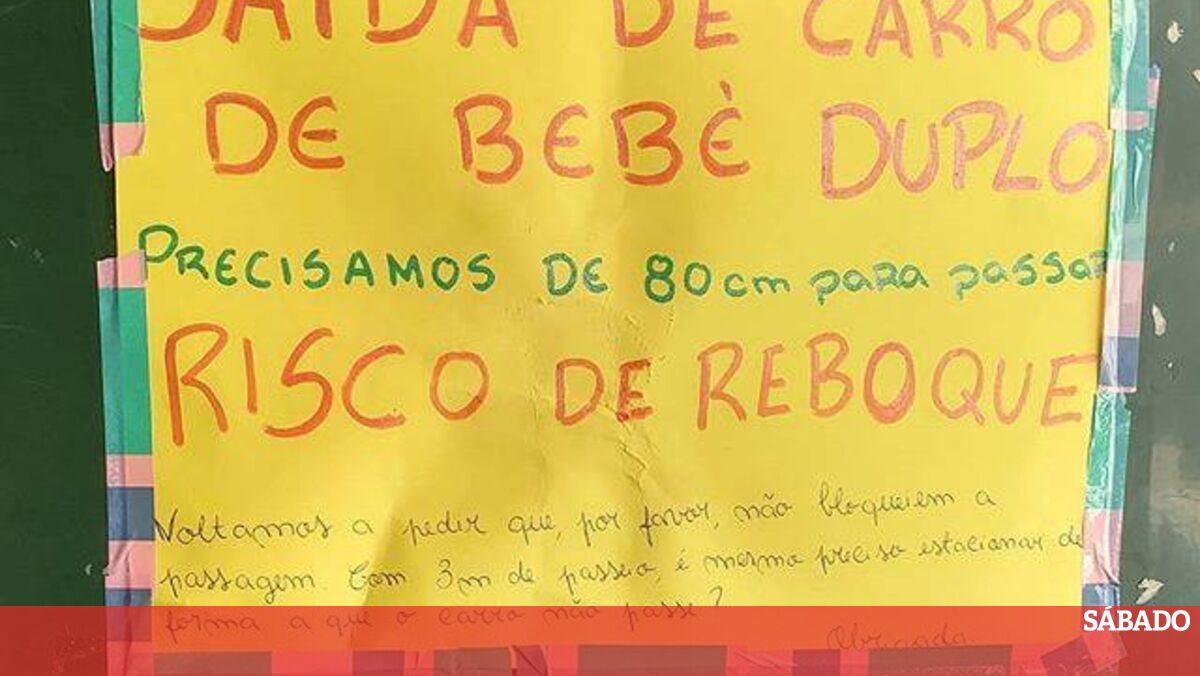 SAÍDA DE CARRO
DE BEBÈ DUPLO
PRECISAMOS DE 80cm para passar
RISCO DE REBOQUE
Voltamos a pedir que, por favor, não bloqueiem a
passagem. Com 3m de passeio, é mesmo preciso estacionar de
forma a que o carro não passe?
Obrigada.
SÁBADO